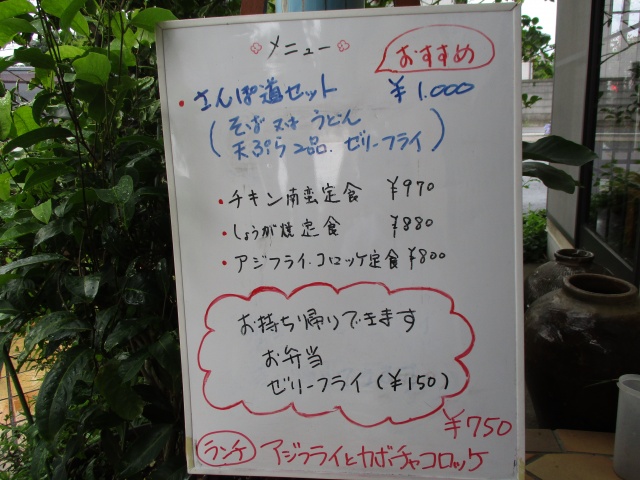 メニュー
おすすめ
・さんぽ道セット ¥1.000
(そば又はうどん
天ぷら2品.ゼリーフライ)
・チキン南蛮定食 ¥970
・しょうが焼定食 ¥880
・アジフライ.コロッケ定食 ¥800
お持ち帰りできます
お弁当
ゼリーフライ(¥150)
¥750
ランチ アジフライとカボチャコロッケ